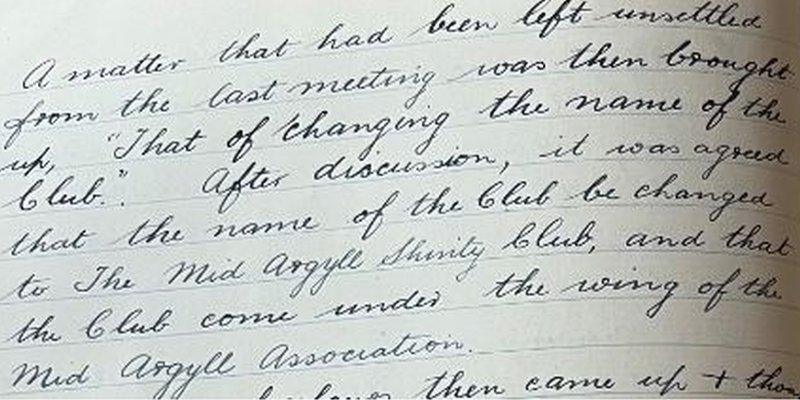 A matter that had been left unsettled
from the last meeting was then brought
up, "That of changing the name of the
Club.". After discussion, it was agreed
that the name of the Club be changed
to The Mid Argyll Shinty Club, and that
the Club come under the wing of the
Mid Argyll Association.
then came up +